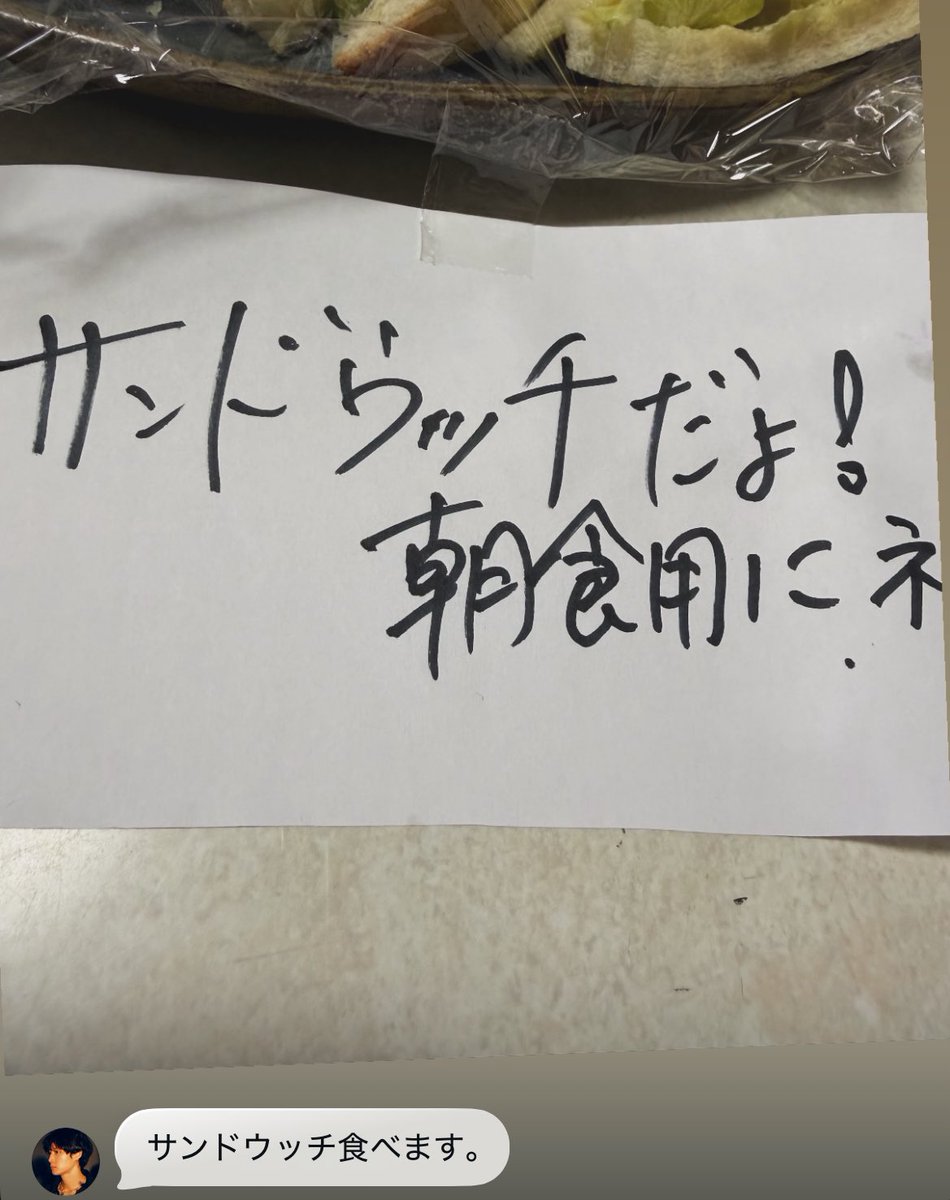 サンドウッチだよ!
朝食用にネ
サンドウッチ食べます。